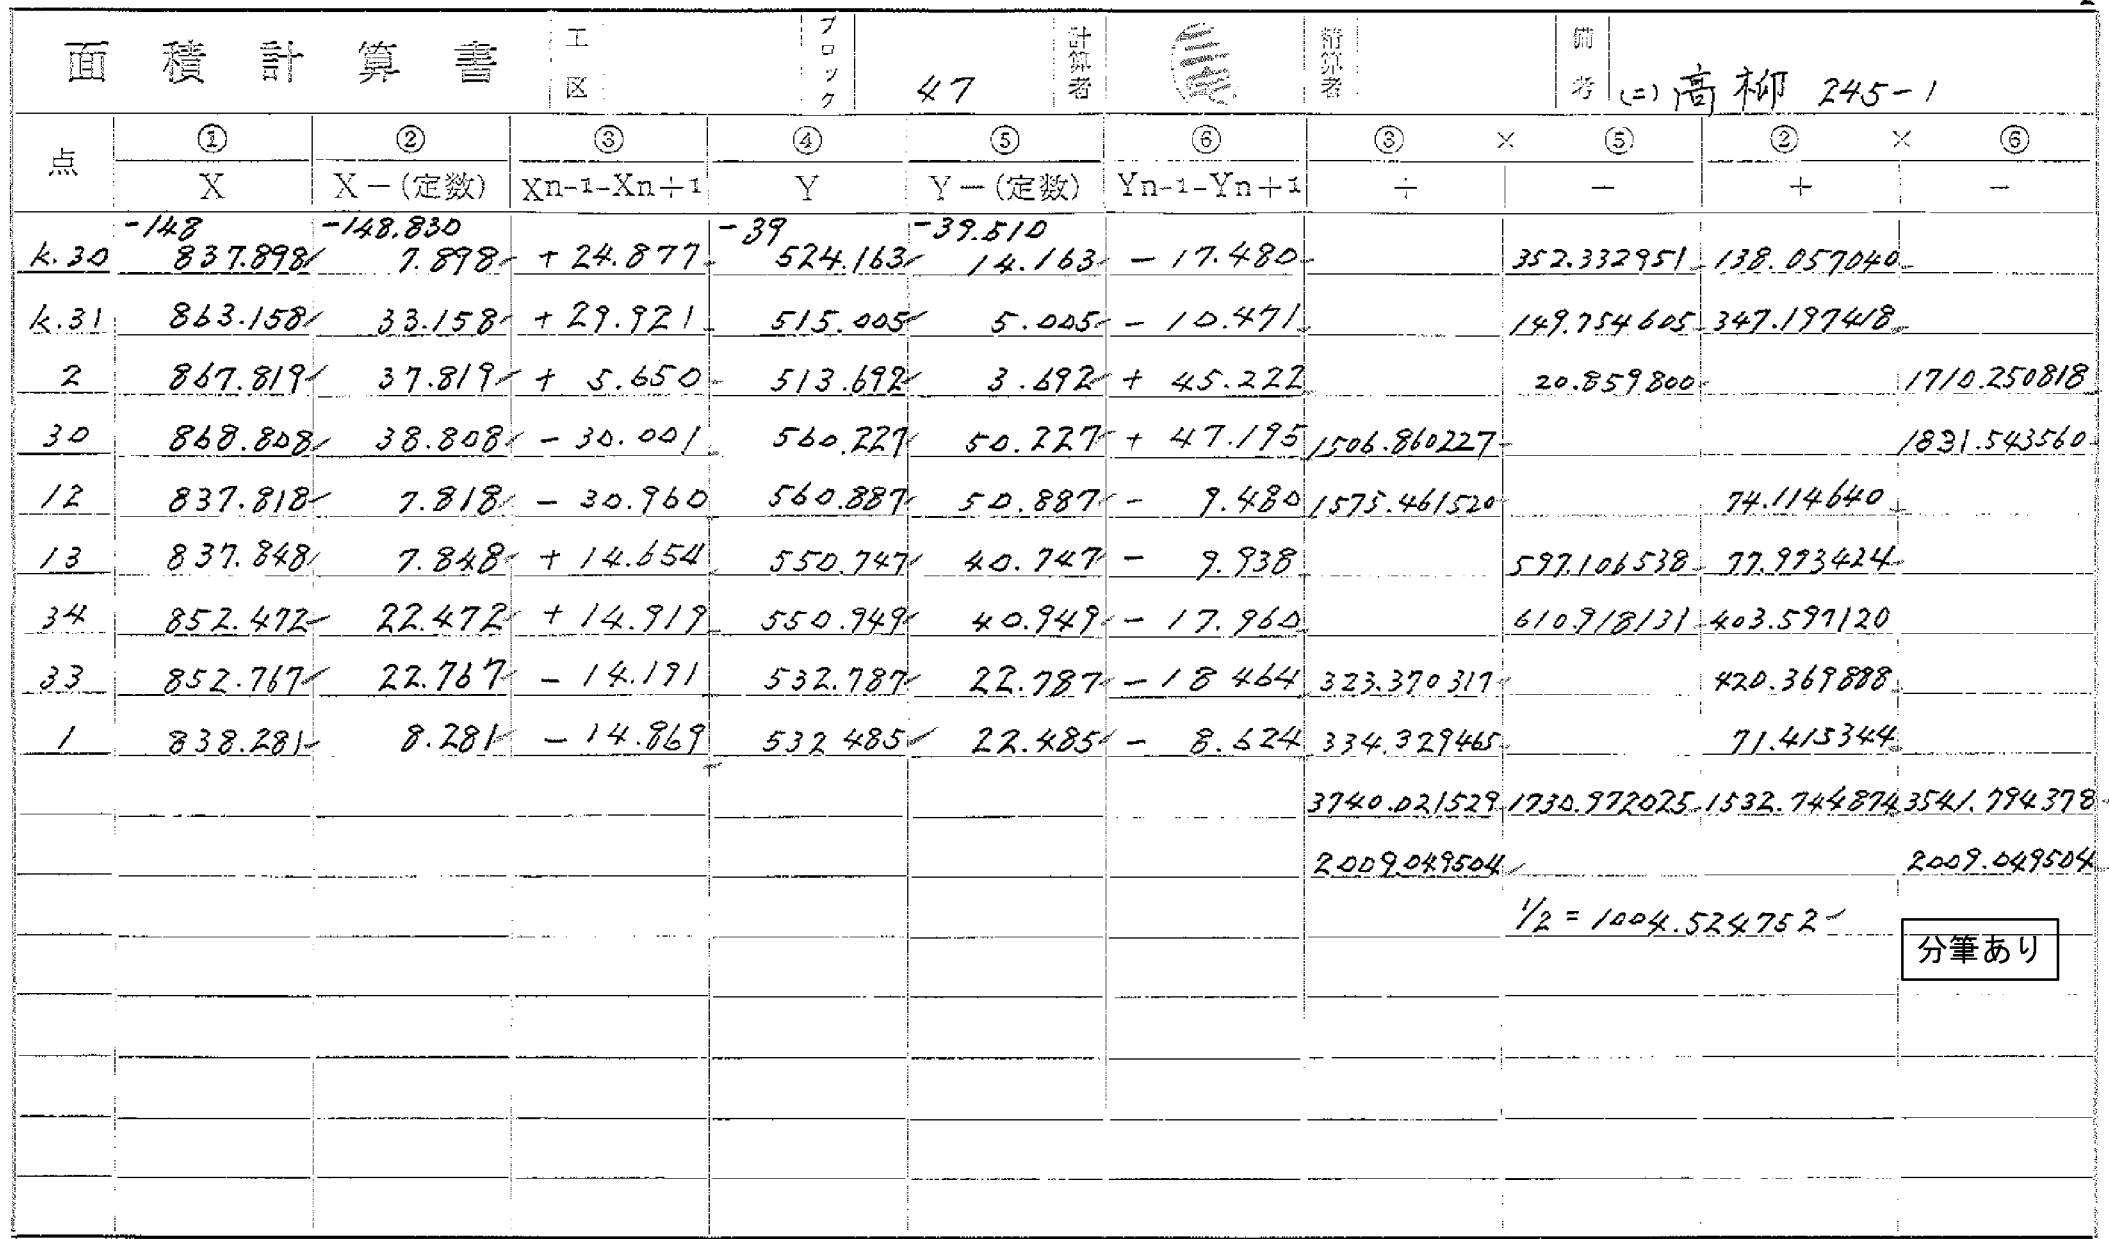 面積計算書 工区 ブロック 47 計算者 精算者 備考 (ニ)高柳 245-1
点 ① ② ③ ④ ⑤ ⑥ ③ × ⑤ ② × ⑥
X X-(定数) Xn-1-Xn+1 Y Y-(定数) Yn-1-Yn+1 + - + -
-148 -148.830 -39 -39.510
k.30 837.898 7.898 +24.877 524.163 14.163 -17.480 352.332951 138.057040
k.31 863.158 33.158 +29.921 515.005 5.005 -10.471 149.754605 347.197418
2 867.819 37.819 +5.650 513.692 3.692 +45.222 20.859800 1710.250818
30 868.808 38.808 -30.001 560.227 50.227 +47.195 1506.860227 1831.543560
12 837.818 7.818 -30.960 560.887 50.887 -9.480 1575.461520 74.114640
13 837.848 7.848 +14.654 550.747 40.747 -9.938 597.106538 77.993424
34 852.472 22.472 +14.919 550.949 40.949 -17.960 610.918131 403.597120
33 852.767 22.767 -14.191 532.787 22.787 -18 464 323.370317 420.369888
1 838.281 8.281 -14.869 532 485 22.485 -8.624 334.329465 71.415344
3740.021529 1730.972025 1532.744874 3541.794378
2009.049504 2009.049504
1/2=1004.524752
分筆あり